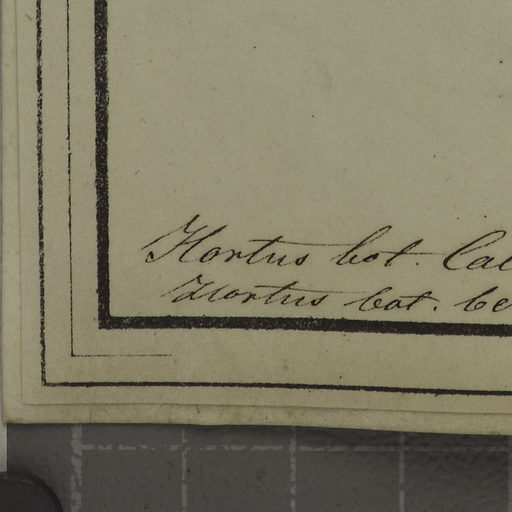 Hortus bot. Cal
Hortus bot. be